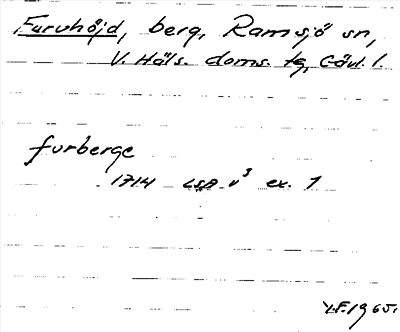 Furuhöjd, berg, Ramsjö sn,
V. Häls. doms. tg, Gävl. l.
furberge
1714 LSA v³ ex. 1
Y.F. 1965.